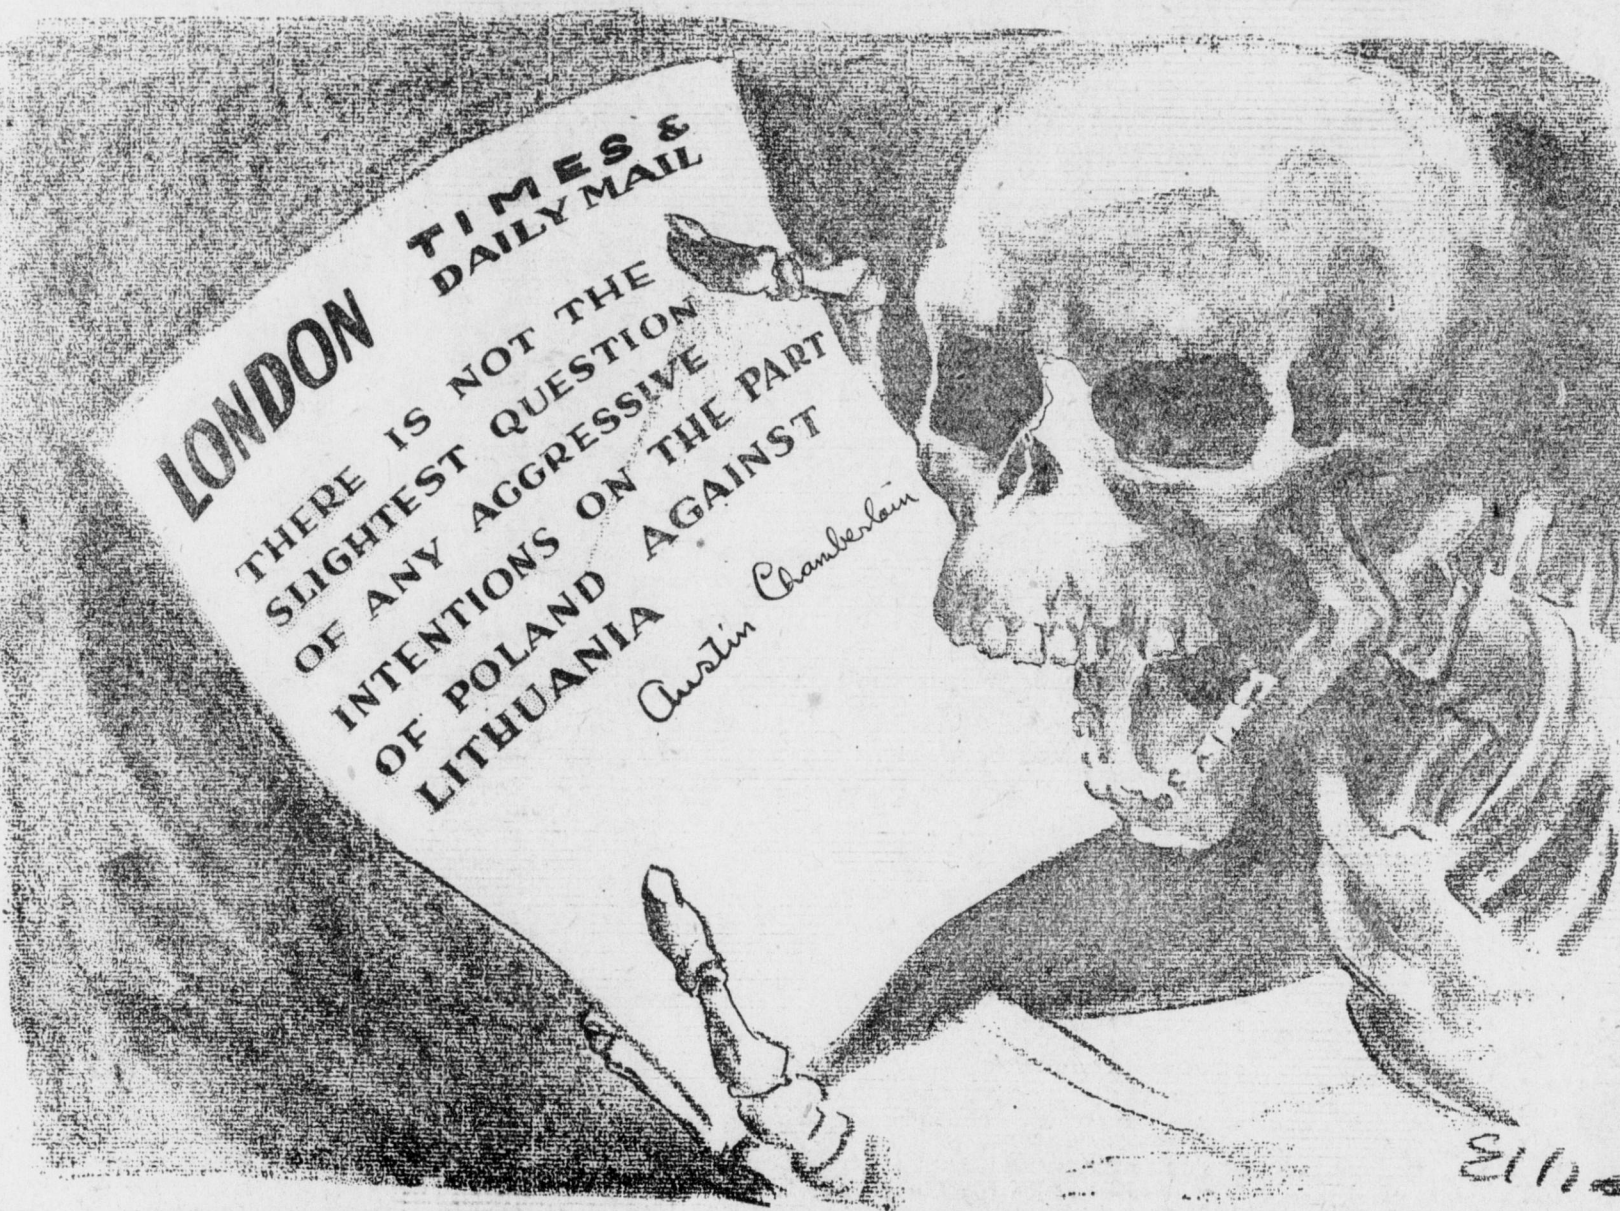 LONDON
TIMES &
DAILY MAIL
THERE IS NOT THE
SLIGHTEST QUESTION
OF ANY AGGRESSIVE
INTENTIONS ON THE PART
OF POLAND AGAINST
LITHUANIA
Austin Chamberlain